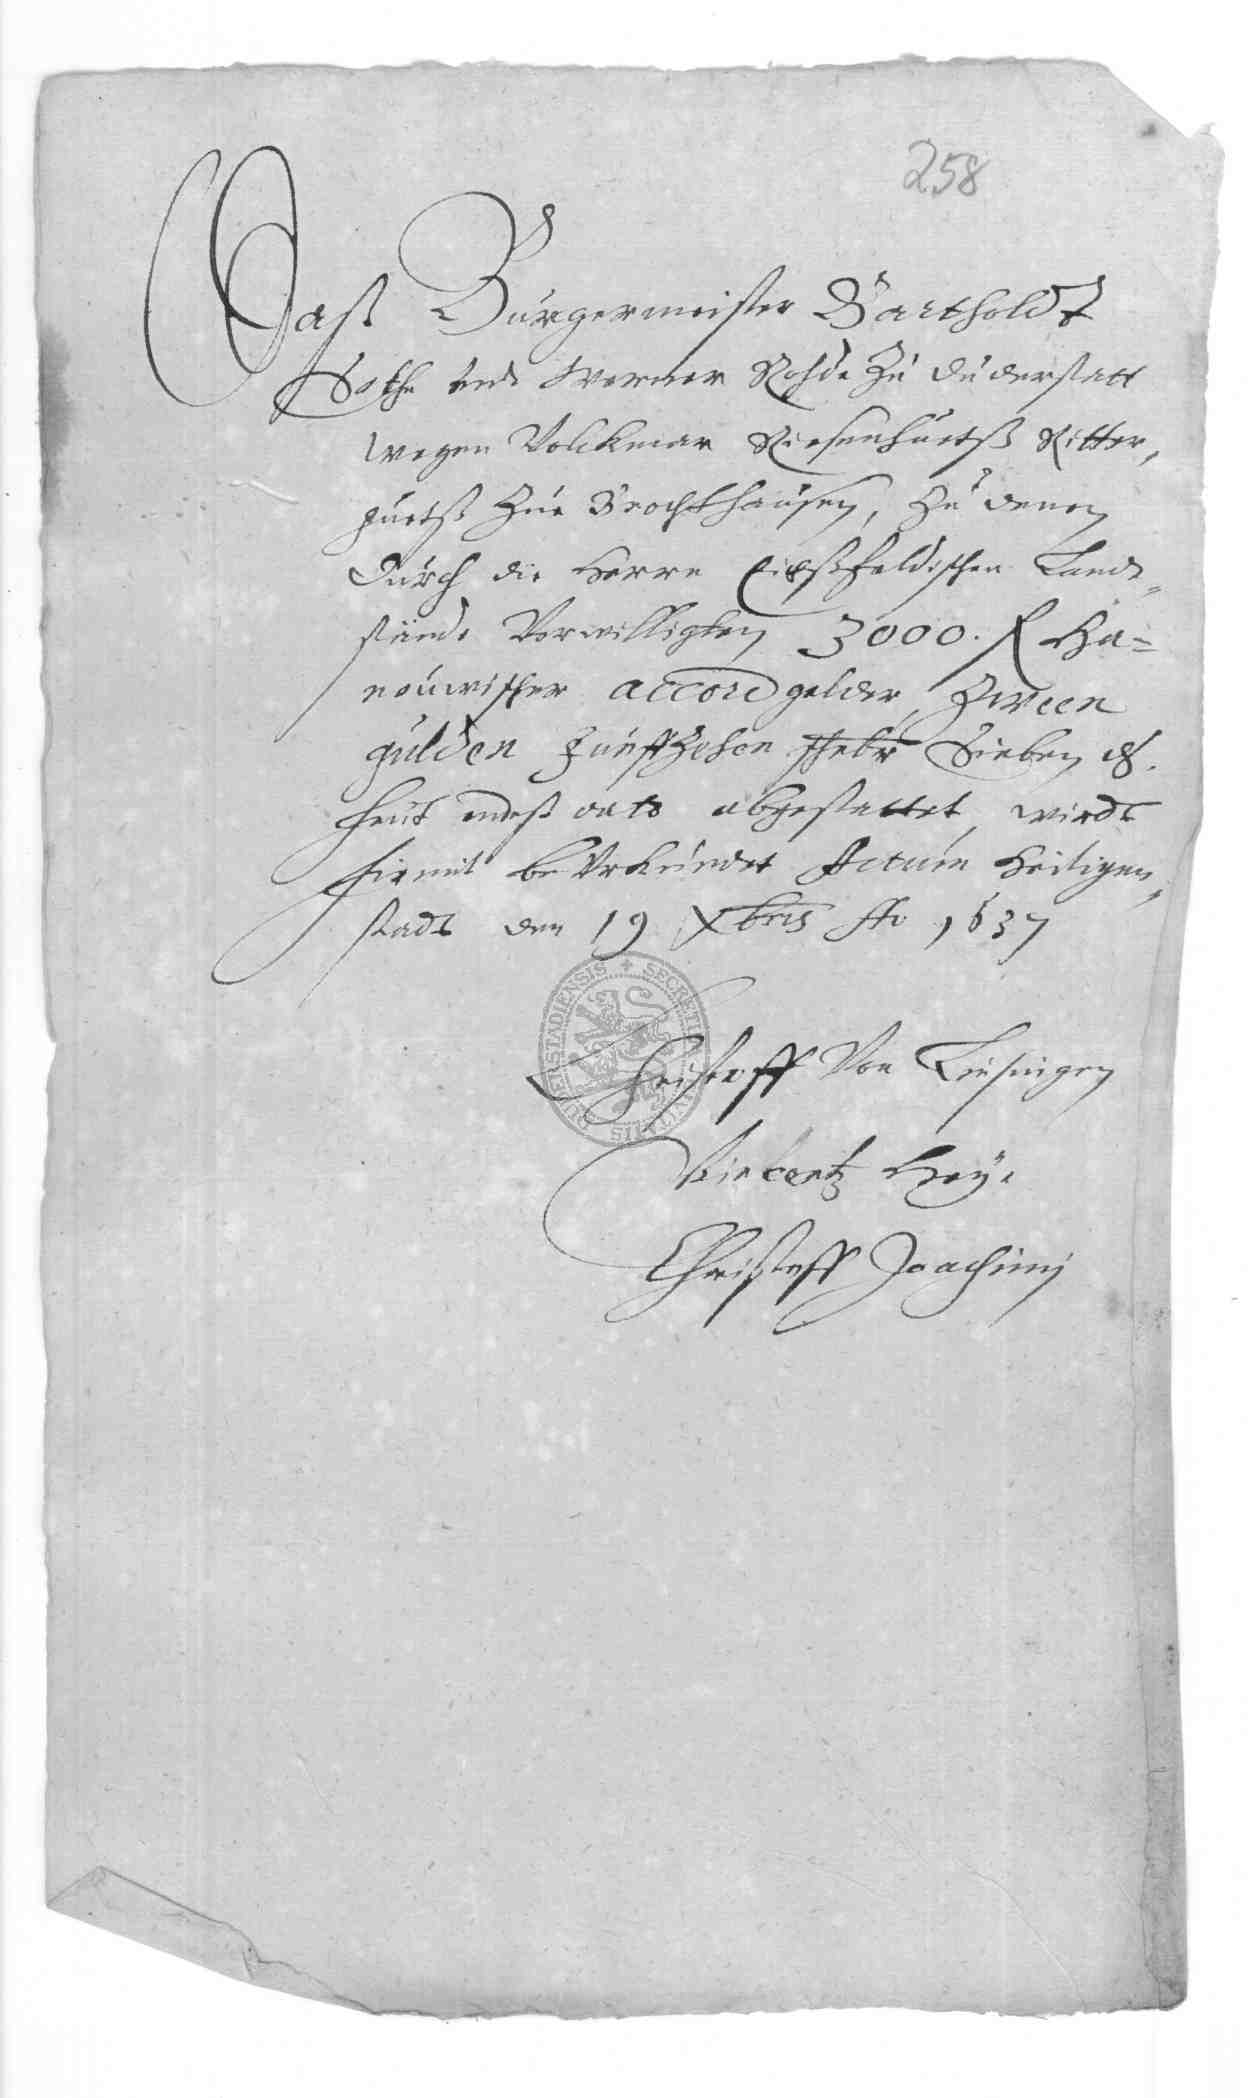 258
Daß Bürgermeister Barthold
Sothe undt Werner Rohde Zu Duderstatt
wegen Volckmar Riesenhuetß Ritter,
guetß Zue Brochthausen, Zu denen
durch die Herrn Eichßfeldischen Landt,,
stände Verwilligten 3000. f Ha=
nouwischer accord gelder, Zween
gulden Fünffzehen Sieben ₰.
heut endeß dato abgestattet, wirdt
hiermit beUrkundet Actum Heiligen,,
stadt den 19 Xbris Ao 1637
SECRETUM CIVITATIS DUDERSTADIENSIS
Christoff Von
Christoff Joachimj